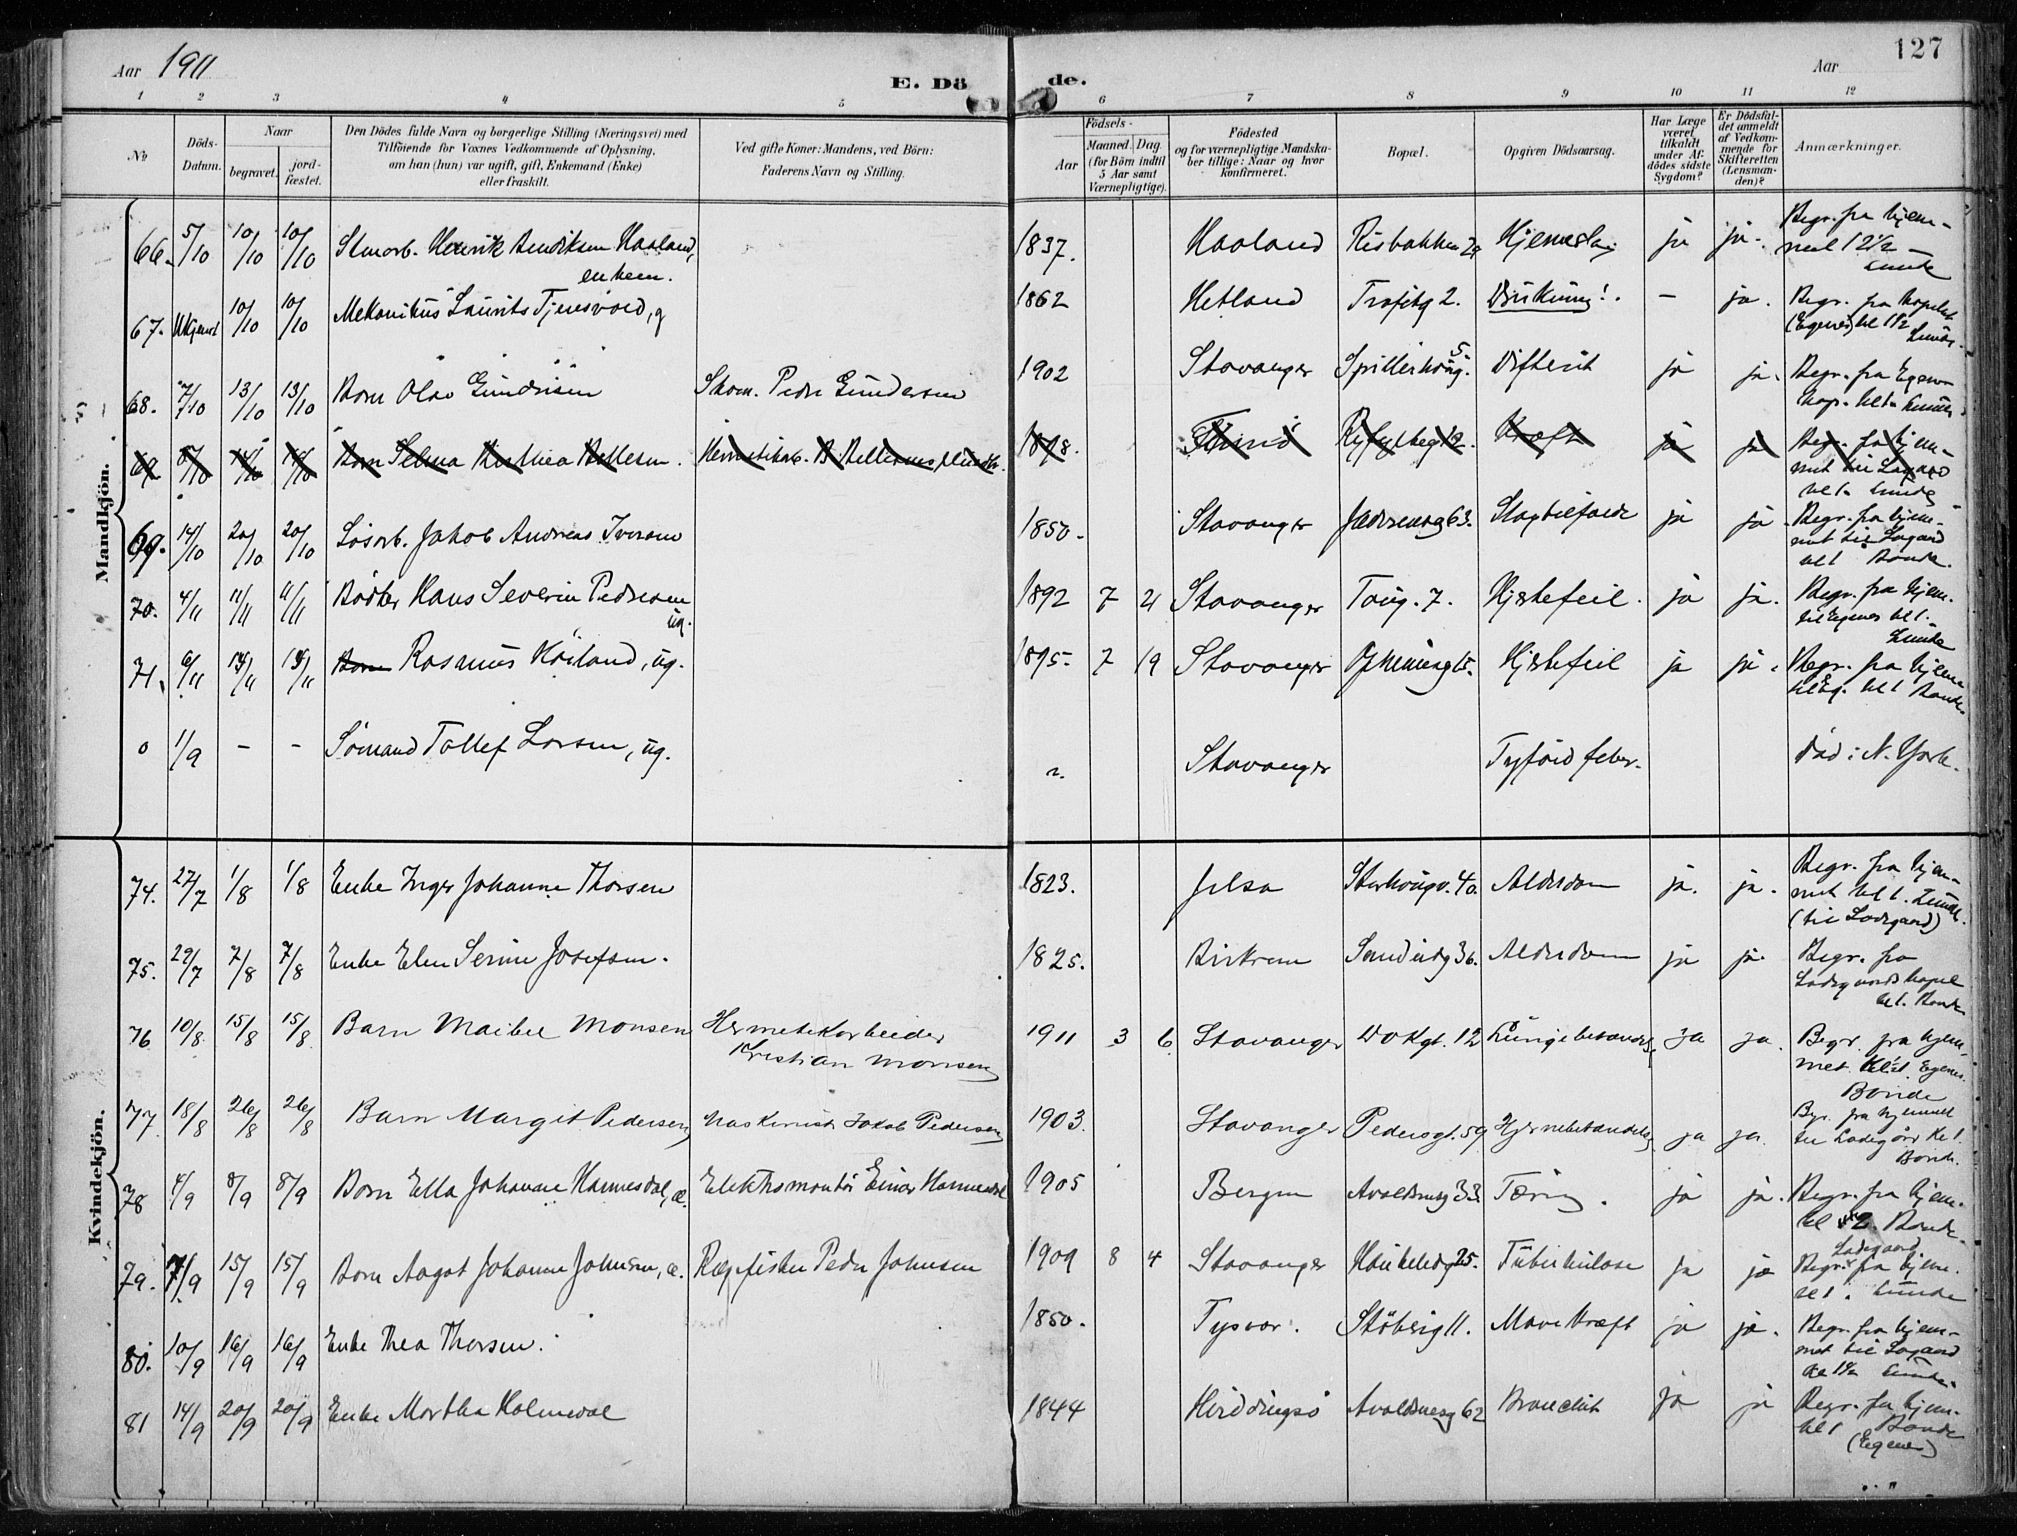 Aar 1911
E. Dö
de.
Aar
127
1 2 3 4 5 6 7 8 9 10 11 12
No
Döds-
Datum.
Naar
begravet.
jord-
fæstet.
Den Dödes fulde Navn og borgerlige Stilling (Næringsvei) med
Tilföiende for Voxnes Vedkommende af Oplysning,
om han (hun) var ugift, gift, Enkemand (Enke)
eller fraskilt.
Ved gifte Koner: Mandens, ved Börn:
Faderens Navn og Stilling.
Födsels-
Aar
Maaned. Dag.
(for Börn indtil
5 Aar samt
Værnepligtige).
Födested
og for værnepligtige Mandska-
ber tillige: Naar og hvor
konfirmeret.
Bopæl.
Opgiven Dödsaarsag.
Har Læge
været
tilkaldt
under Af-
dödes sidste
Sygdom?
Er Dödsfal-
det anmeldt
af Vedkom-
mende for
Skifteretten
(Lensman-
den)?
Anmærkninger.
Mandkjön.
66. 5/10 10/10 10/10 Henrik Haaland, 1837. Haaland ja ja. Begr. fra hjem-
met 12 1/2
Lunde
67. 10/10 10/10 Mekanikus Laurits Tjensvold, g 1862 Hetland 2. Drukning! . — ja. Begr. fra kapellet
(Egenes) kl 1 1/2
Lunde.
68. 7/10 13/10 13/10 Barn Olav Gundersen Skom. Peder Gundersen 1902 Stavanger 5 Difterit ja ja. Begr. fra Egenes
kap. kl 1 Lunde
69. 8/10 14/10 14/10 Barn Selma 1898. 12. Kræft ja ja Begr. fra hjem-
met til Lagaard
kl 1 Lunde
69. 14/10 20/10 20/10 Løsarb. Jakob Andreas Iversen 1850. Stavanger 63. Slagtilfælde ja ja. Begr. fra hjem-
met til Lagaard
kl 1 Bonde.
70. 4/11 11/11 11/11 Bødker Hans Severin Pedersen
ug. 1892 7 21 Stavanger Taug. 7. Hjertefeil. ja ja. Begr. fra hjem.
til Egenes kl 1.
Lunde
71. 6/11 14/11 14/11 Barn Rasmus Høiland, ug. 1895. 7 19 Stavanger 15. Hjertefeil ja ja. Begr. fra hjem-
kl 1 Bonde.
0 1/9 — — Sømand Tollef Larsen, ug. Stavanger Tyfoid feber. Død i N. York.
Kvindekjön.
74. 27/7 1/8 1/8 Enke Inger Johanne Thorsen 1823. Jelsa 40. Alderdom ja. ja. Begr. fra hjem-
met kl 1. Lunde.
(til Ladegaard)
75. 29/7 7/8 7/8 Enke Elen Serine Josefsen. 1825. Birkrem 36. Alderdom ja ja. Begr. fra
Ladegaards kapel
kl 1. Bonde
76 10/8 15/8 15/8 Barn Maibel Monsen Hermetikarbeider
Kristian Monsen 1911 3 6 Stavanger Dokgt. 12 Lungebetændels. ja ja. Begr. fra hjem-
met Egenes.
Bonde
77 18/8 26/8 26/8 Barn Margit Pedersen Maskinist Jakob Pedersen 1903. Stavanger Pedersgt. 59 Hjernebetændels. ja ja. Bgr. fra hjemmet
til Ladegård kl 1.
Bonde.
78 4/9 8/9 8/9 Barn Ella Johanne Hannesdal, æ. Elektromontør Einar Hannesdal 1905 Bergen Avaldsnesg 33. Tæring. ja ja. Begr. fra hjem.
kl 2. Bonde.
79. 7/9 15/9 15/9 Barn Aagot Johanne Johnsen, æ. Rægefisker Peder Johnsen 1909 8 4 Stavanger Haukeligt 25. Tuberkulose ja ja Ladegaard
Begr. fra hjem.
kl 1. Lunde
80. 10/9 16/9 16/9 Enke Thea Thorsen. 1850. Tysvær. Støberig 11. Mavekræft ja ja. Begr. fra hjem-
met til Lagaard
kl 1 1/2 Lunde.
81 14/9 20/9 20/9 Enke Martha Holmedal 1844 Hviddingsø Avaldsnesg 62 Bronchit ja ja Begr. fra hjem-
kl 1 Bonde
(Egenes)